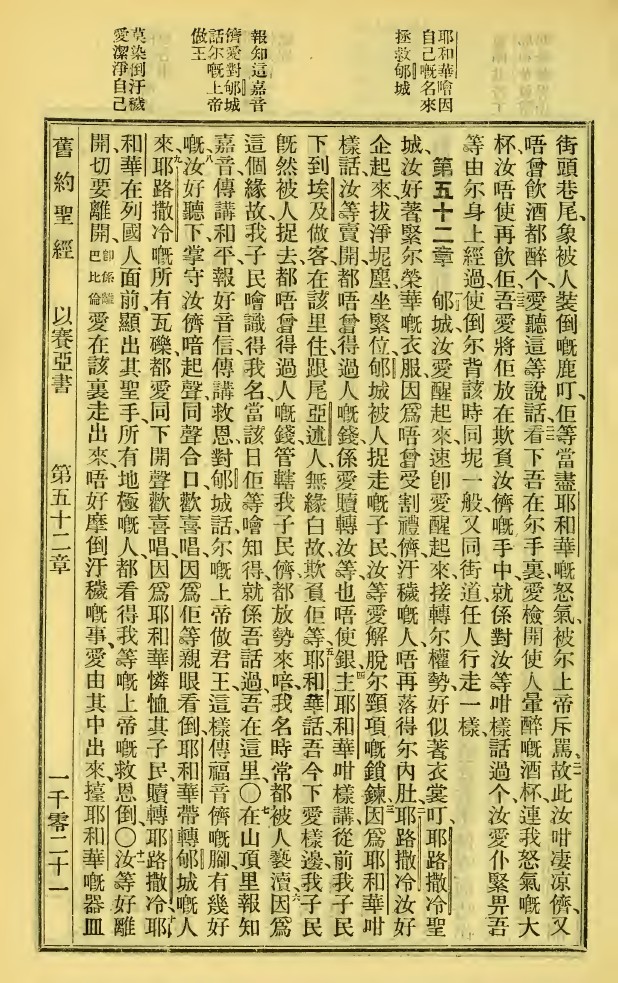 耶和華噲因
自己嘅名來
拯救郇城
報知這嘉音
儕愛對郇城
話尔嘅上帝
做王
莫染倒汙穢
愛潔淨自己
街頭巷尾、象被人裝倒嘅鹿叮、佢等當盡耶和華嘅怒氣、被尔上帝斥罵、故此汝咁凄凉儕、又
唔曾飲酒都醉个、愛聽這等說話、看下吾在尔手裏愛檢開使人暈醉嘅酒杯、連我怒氣嘅大
杯、汝唔使再飲佢、吾愛將佢放在欺負汝儕嘅手中、就係對汝等咁樣話過个、汝愛仆緊畀吾
等由尔身上經過、使倒尔背該時同坭一般、又同街道、任人行走一樣、
第五十二章　郇城汝愛醒起來、速卽愛醒起來、接轉尔權勢、好似著衣裳叮、耶路撒冷聖
城、汝好著緊尔榮華嘅衣服、因爲唔曾受割禮儕、汙穢嘅人、唔再落得尔內肚、耶路撒冷汝好
企起來、拔淨坭塵、坐緊位、郇城被人捉走嘅子民、汝等愛解脫尔頸項嘅鎖鍊、因爲耶和華咁
樣話、汝等賣開都唔曾得過人嘅錢、係愛贖轉汝等也唔使銀、主耶和華咁樣講、從前我子民
下到埃及做客、在該里住、跟尾亞述人無緣白故欺負佢等、耶和華話、吾今下愛樣邊、我子民
旣然被人捉去、都唔曾得過人嘅錢、管轄我子民儕、都放勢來喑、我名時常都被人褻瀆、因爲
這個緣故、我子民噲識得我名、當該日佢等噲知得、就係吾話過、吾在這里、〇在山頂里報知
嘉音、傳講和平、報好音信、傳講救恩、對郇城話、尔嘅上帝做君王、這樣傳福音儕嘅腳、有幾好
嘅、汝好聽下、掌守汝儕喑起聲、同聲合口歡喜唱、因爲佢等親眼看倒、耶和華帶轉郇城嘅人
來、耶路撒冷嘅所有瓦礫、都愛同下開聲歡喜唱、因爲耶和華憐恤其子民、贖轉耶路撒冷、耶
和華在列國人面前顯出其聖手、所有地極嘅人、都看得我等嘅上帝嘅救恩倒、〇汝等好離
開、切要離開、巴比倫愛在該裏走出來、唔好摩倒汙穢嘅事、愛由其中出來、擡耶和華嘅器皿
舊約聖經　以賽亞書　第五十二章　一千零二十一